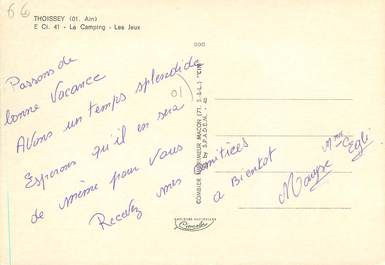 66
THOISSEY (01. Ain)
E Ct. 41 - Le Camping - Les Jeux
Passons de
bonne Vacance
01
AVons un temps splendide
Esperons qu'il en sera
de même pour Vous
Recevez mes amitices
a Bientot
Mme
COMBIER IMPRIMEUR MACON (71. S.-&-L.) "CIM"
by S.P.A.D.E.M.
Combier